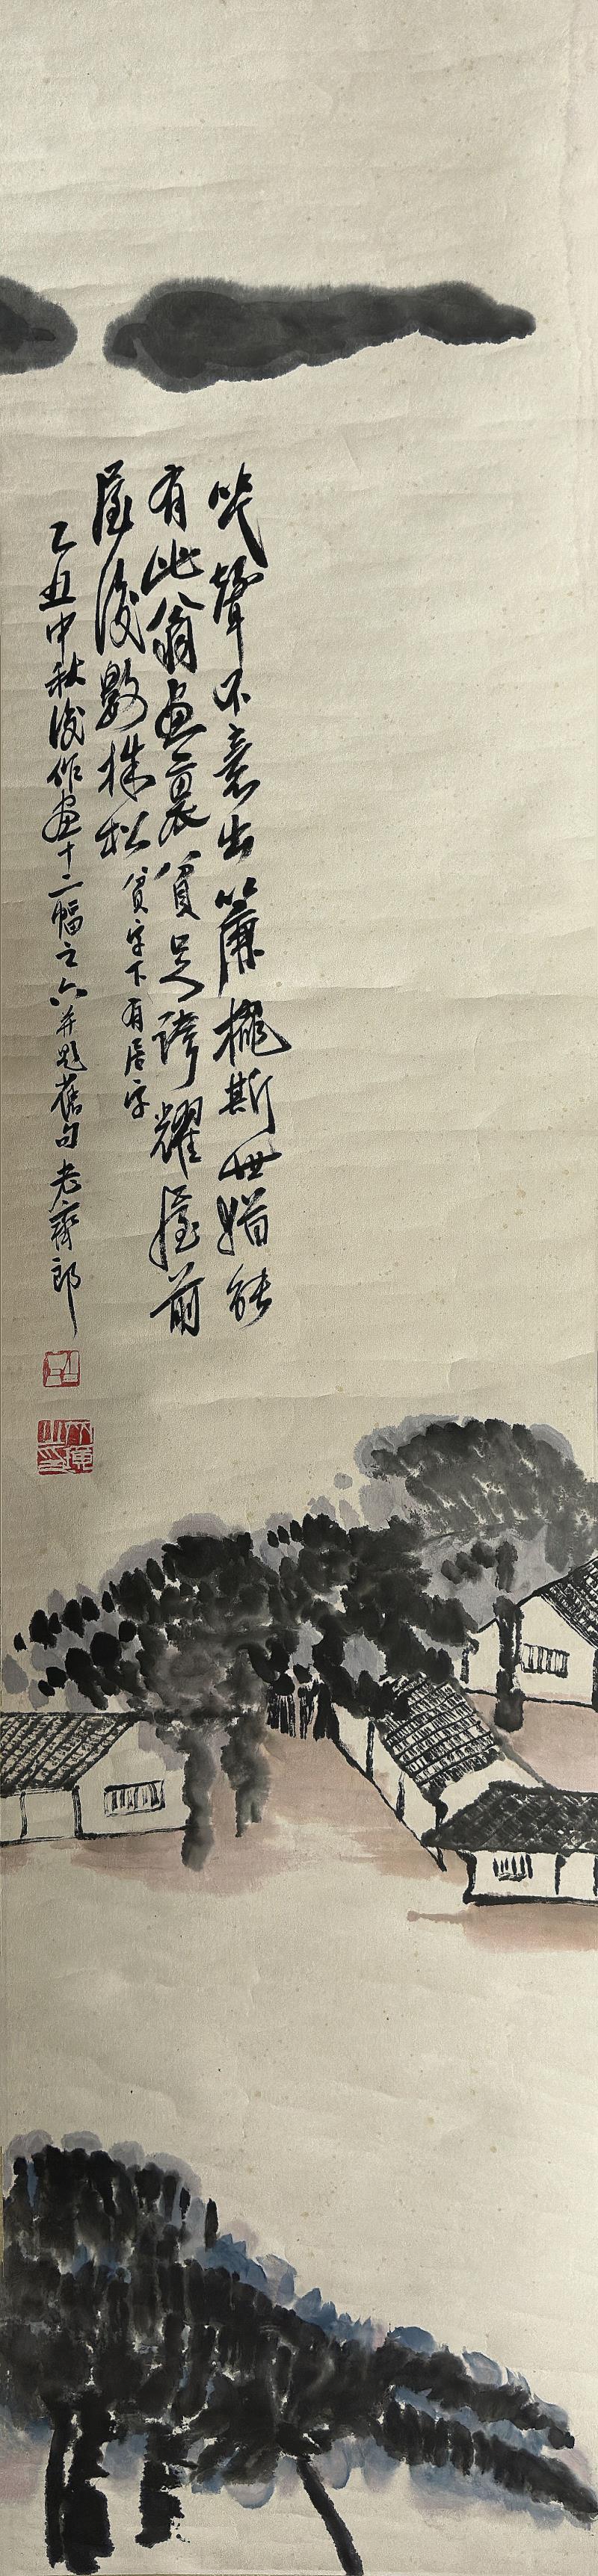 吠聲不意出簾櫳斯世猶能
有此翁畫裏貧足誇耀屋前
屋後數株松
貧字下有居字
乙丑中秋後作畫十二幅之六并題舊句老齊郎